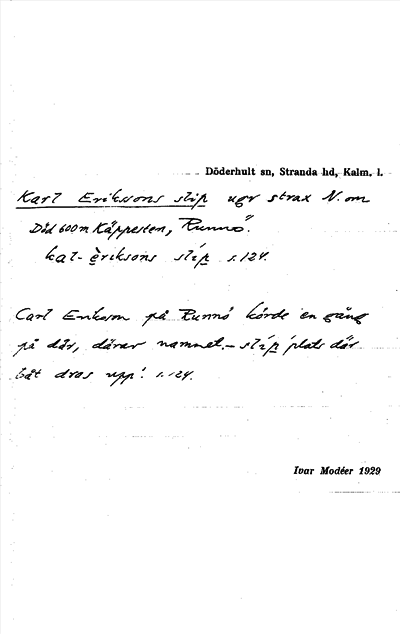 Döderhult sn, Stranda hd, Kalm. l.
Karl Eriksons slip ugr strax N. om
Did 600 m Käppesten, "Runnö".
kal- èriksòns slíp s. 124.
Carl Erikson på Runnö körde en gång
på där, därav namnet. – slíp 'plats där
båt dras upp'. s. 124.
Ivar Modéer 1929